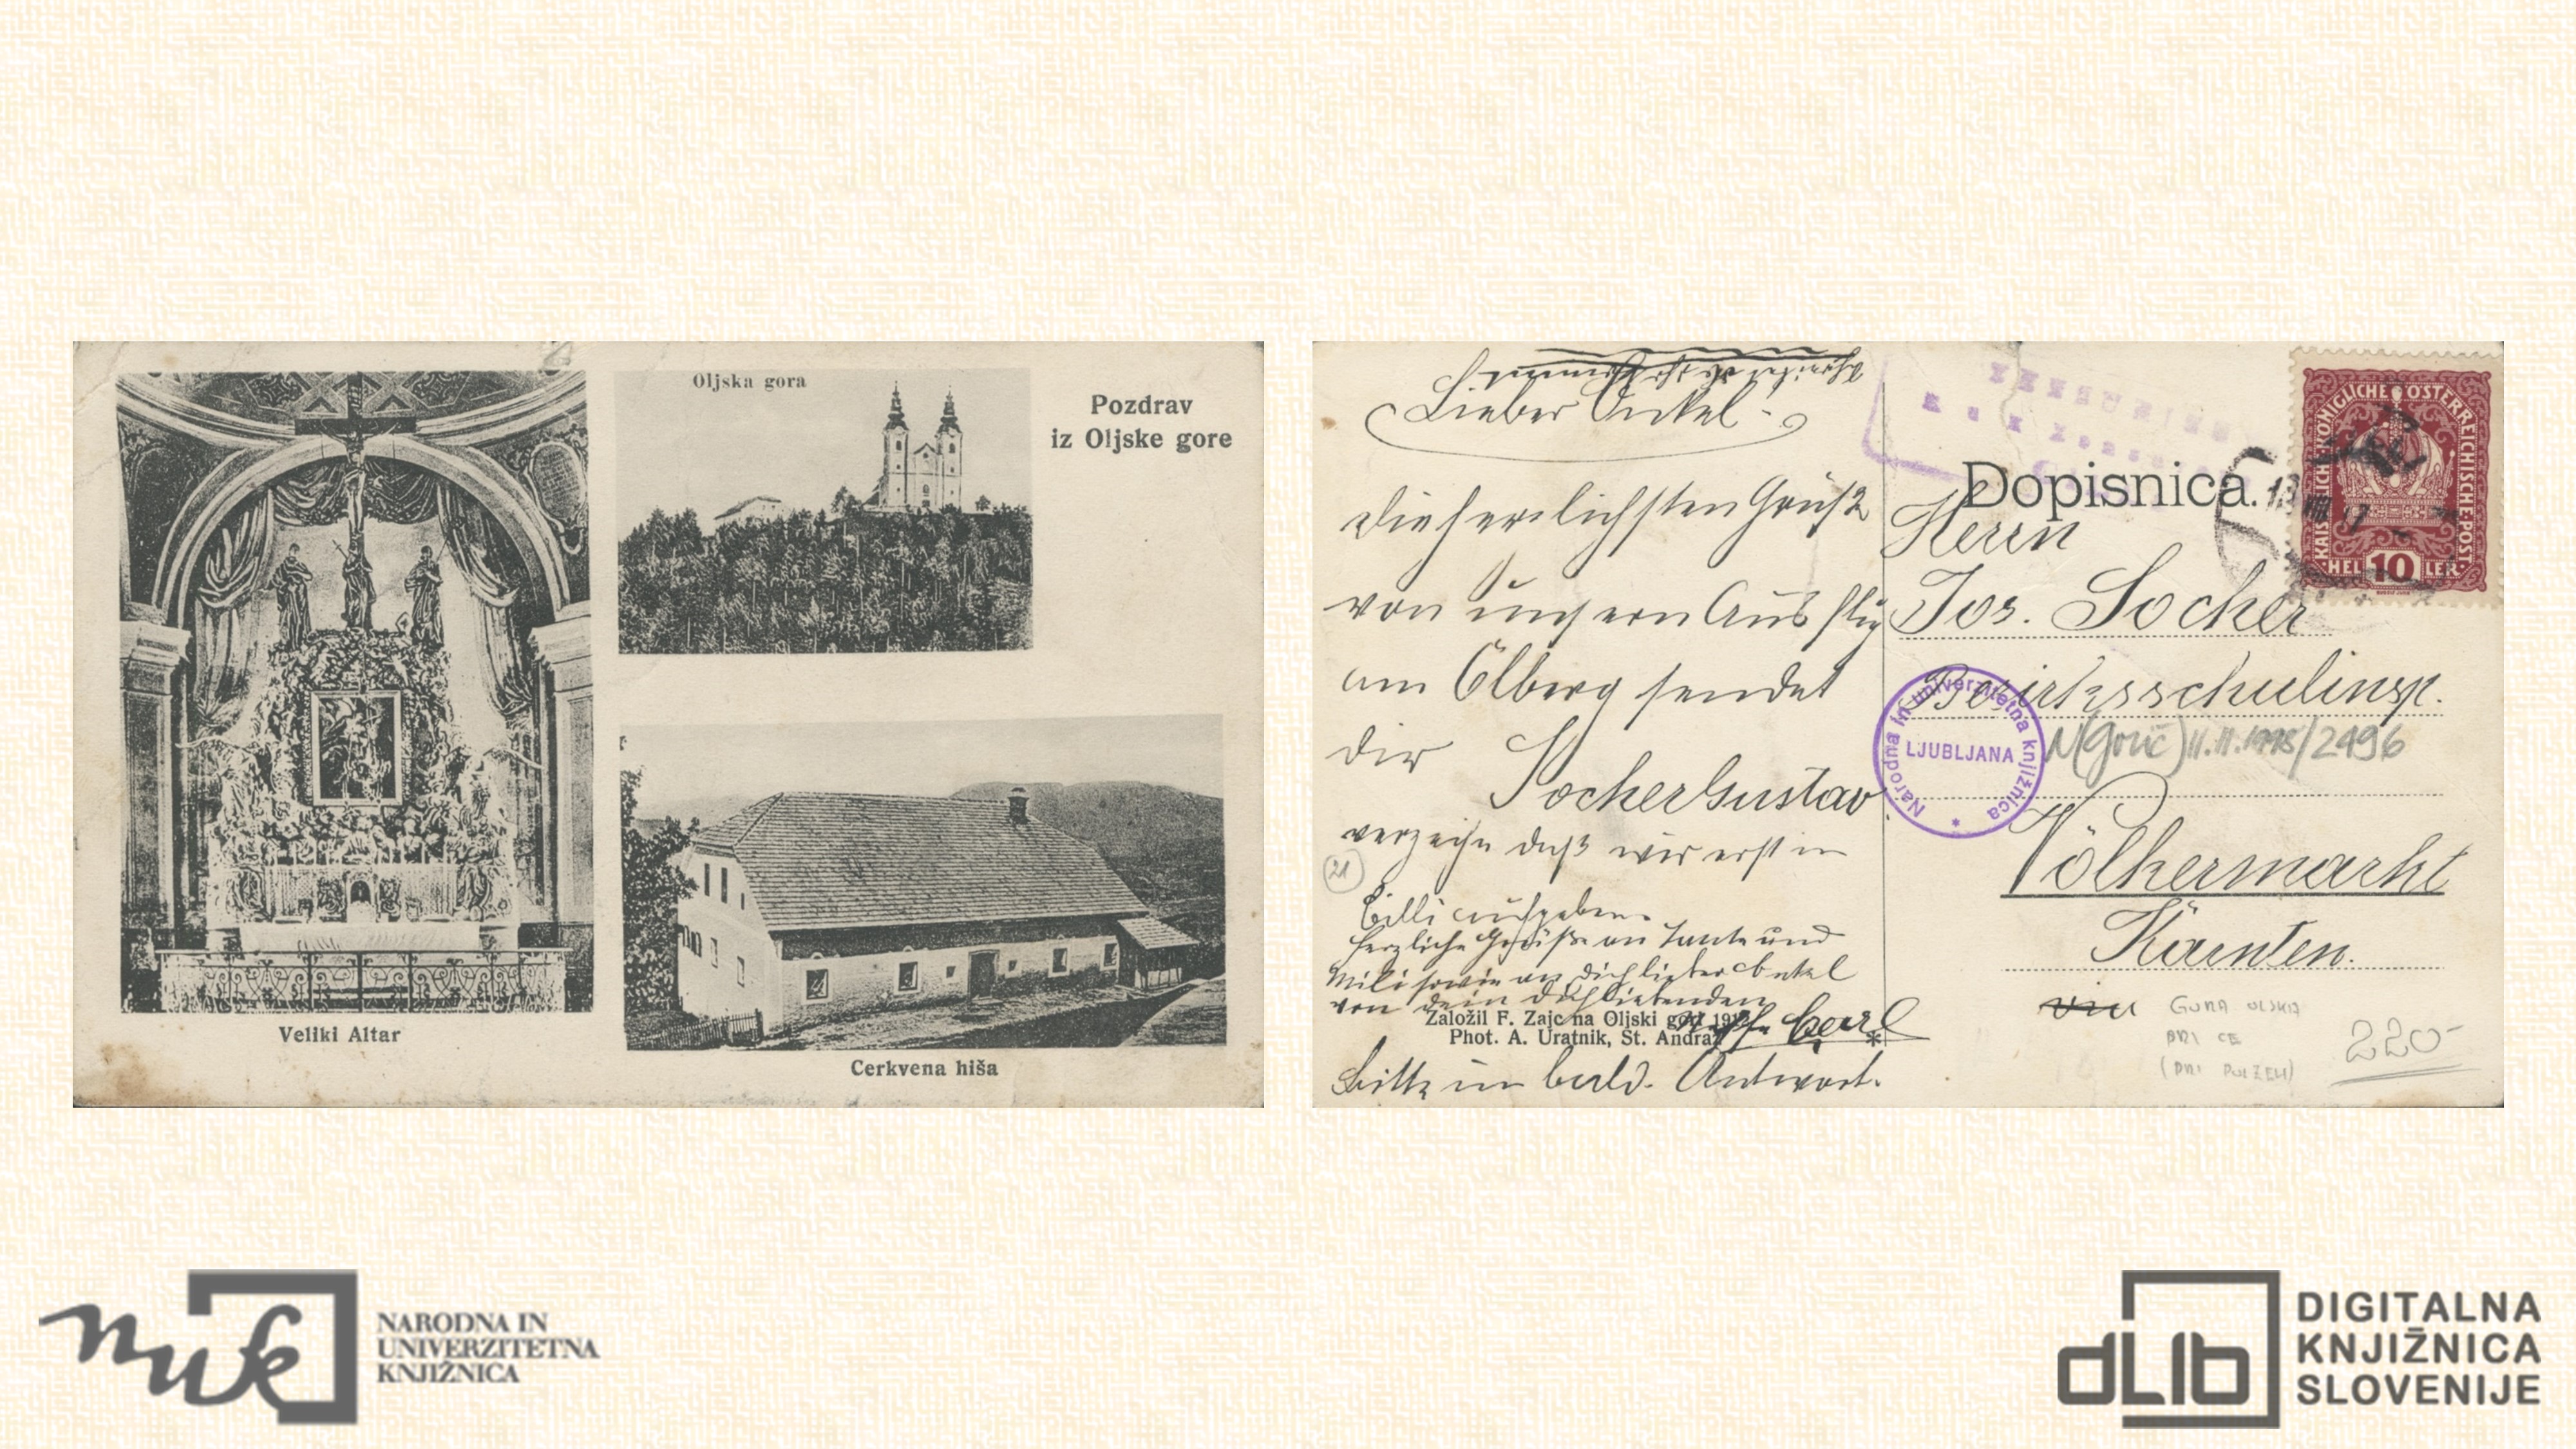 Oljska gora
Pozdrav
iz Oljske gore
Veliki Altar
Cerkvena hiša
Lieber Onkel!
die herzlichsten Grüße
von unsern Ausflug
am Ölberg sendet
dir Socker Gustav
verzeihe daß wir erst in
Cilli aufgeben.
herzliche Grüße an Tante und
Mili sowie an dich lieber Onkel
von dein dichliebenden
Carl
Založil F. Zajc na Oljski gori
Phot. A. Uratnik, St. Andraž
*
Bitte um bald. Antwort.
21
Dopisnica.
KAISERLICHE KÖNIGLICHE ÖSTERREICHISCHE POST
HELLER
10
Herrn
Jos. Socker
Bezirksschulinsp.
Narodna in univerzitetna knjižnica
LJUBLJANA
N(Gorič) 11.11.1998/2496
Völkermarkt
Kärnten.
via
GORA OLJSKA
PRI CE
(PRI POLZELI)
220-
nuk
NARODNA IN
UNIVERZITETNA
KNJIŽNICA
dLib
DIGITALNA
KNJIŽNICA
SLOVENIJE